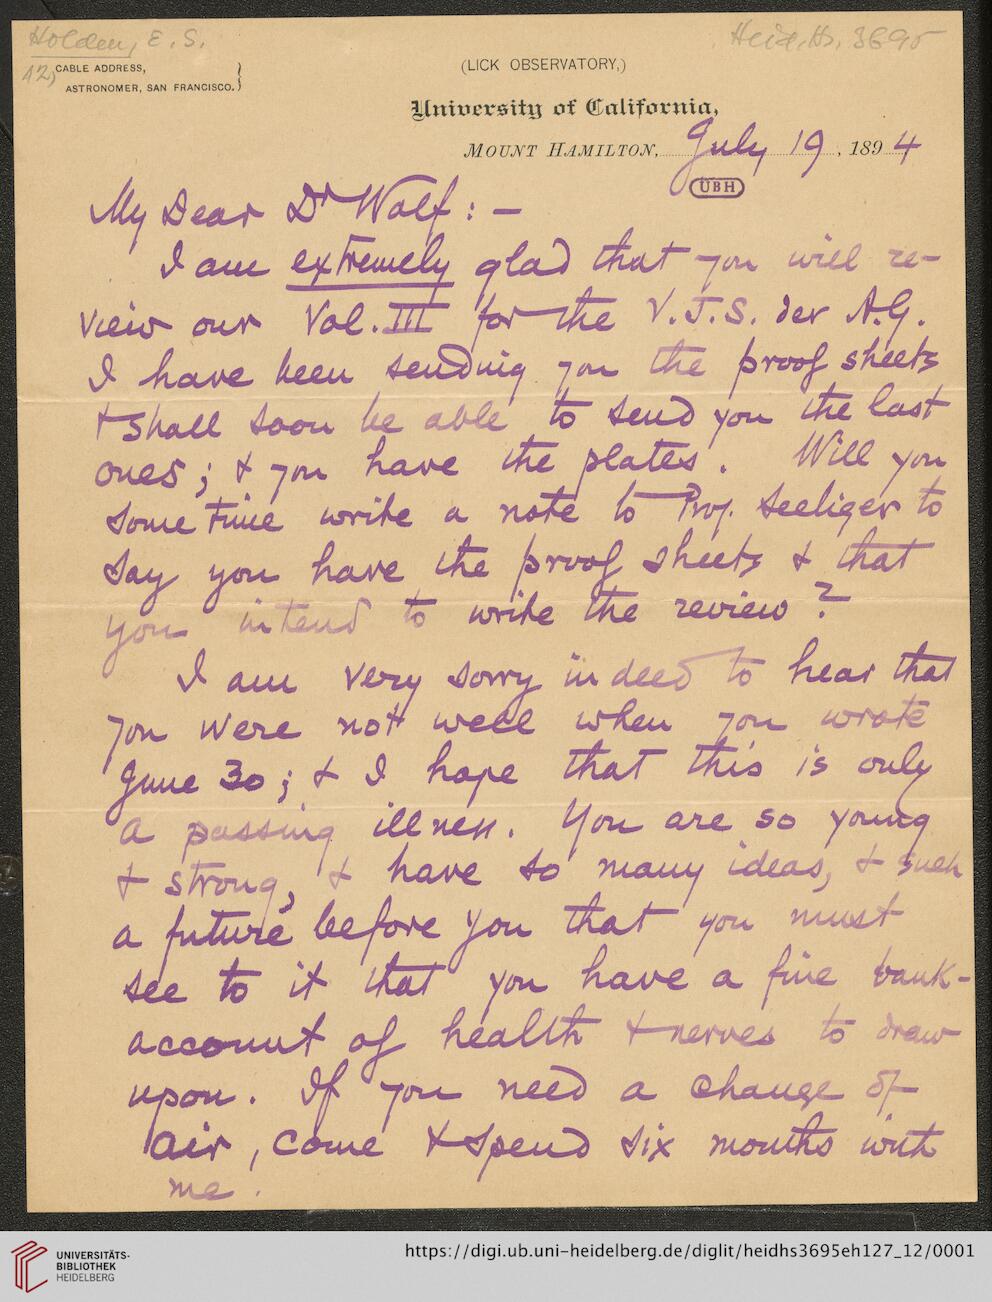 Holden, E. S.
Heid. Hs. 3695
12)
CABLE ADDRESS,
ASTRONOMER, SAN FRANCISCO.}
(LICK OBSERVATORY,)
University of California,
MOUNT HAMILTON, July 19, 1894
UBH
My Dear Dr Wolf: —
I am extremely glad that you will re-
view our Vol. III for the V.J.S. der A.G.
I have been sending you the proof sheets
& shall soon be able to send you the last
ones; & you have the plates. Will you
some time write a note to Prof. Seeliger to
say you have the proof sheets & that
you intend to write the review?
I am very sorry indeed to hear that
you were not well when you wrote
June 30; & I hope that this is only
a passing illness. You are so young
& strong, & have so many ideas, & such
a future before you that you must
see to it that you have a fine bank-
account of health & nerves to draw
upon. If you need a change of
air, come & spend six months with
me.
UNIVERSITÄTS-
BIBLIOTHEK
HEIDELBERG
https://digi.ub.uni-heidelberg.de/diglit/heidhs3695eh127_12/0001